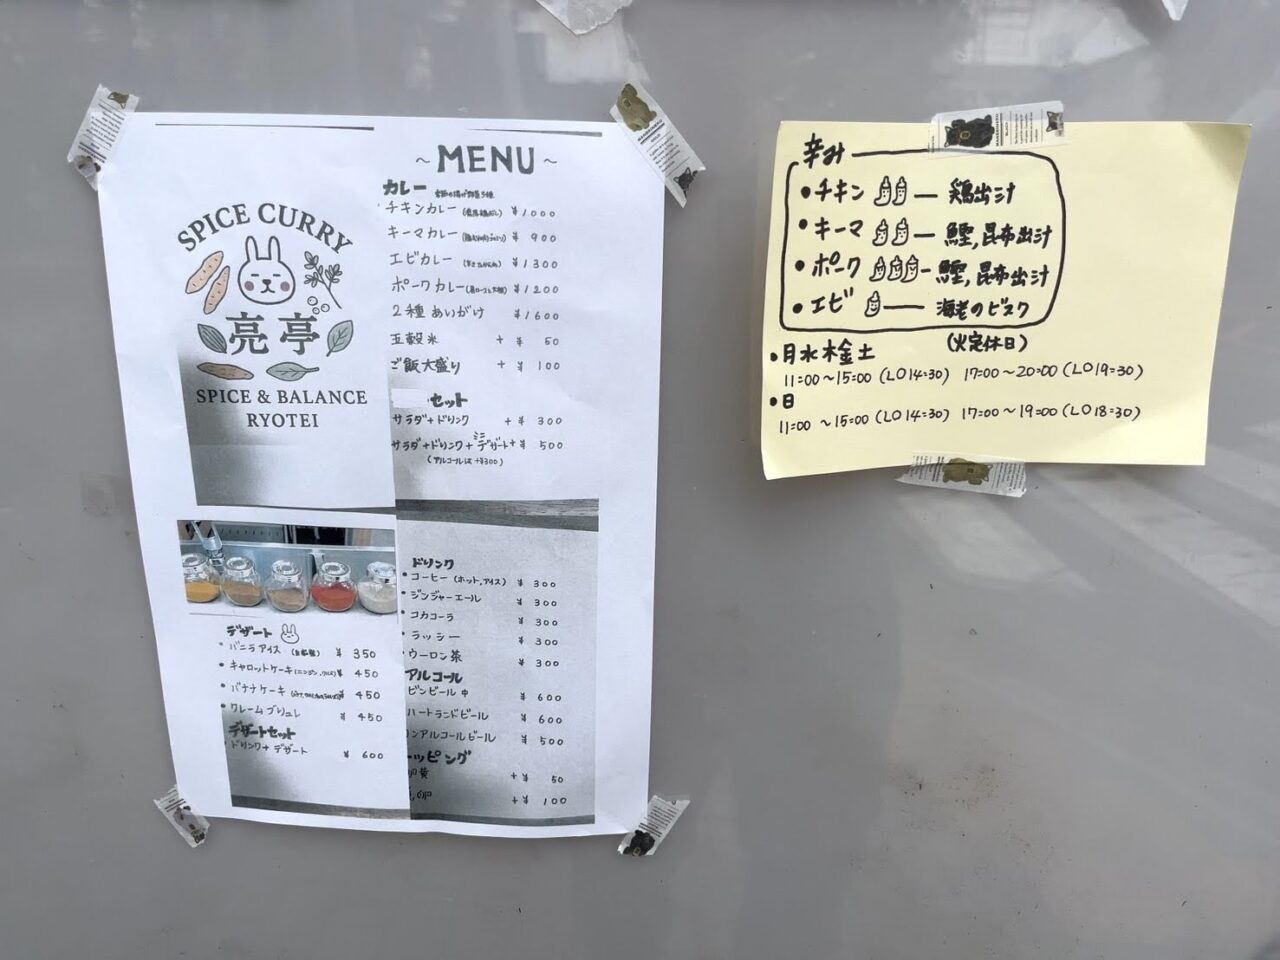 SPICE CURRY
亮亭
SPICE & BALANCE
RYOTEI
~ MENU ~
カレー
チキンカレー ¥1000
キーマカレー ¥ 900
エビカレー ¥1300
ポークカレー ¥1200
2種あいがけ ¥1600
五穀米 + ¥ 50
ご飯大盛り + ¥ 100
セット
サラダ+ドリンク + ¥ 300
サラダ+ドリンク+ミニデザート+¥ 500
(アルコールは+¥300)
デザート
・バニラアイス (自家製) ¥ 350
・キャロットケーキ ¥ 450
・バナナケーキ ¥ 450
・クレームブリュレ ¥ 450
デザートセット
・ドリンク+デザート ¥ 600
ドリンク
・コーヒー (ホット,アイス) ¥ 300
・ジンジャーエール ¥ 300
・コカコーラ ¥ 300
・ラッシー ¥ 300
・ウーロン茶 ¥ 300
アルコール
ビンビール中 ¥ 600
ハートランドビール ¥ 600
ンアルコールビール ¥ 500
ッピング
黄 + ¥ 50
+ ¥ 100
辛み
・チキン — 鶏出汁
・キーマ — 鰹,昆布出汁
・ポーク — 鰹,昆布出汁
・エビ — 海老のビスク
(火定休日)
・月水木金土
11:00~15:00 (LO14:30) 17:00~20:00 (LO19:30)
・日
11:00~15:00 (LO14:30) 17:00~19:00 (LO18:30)